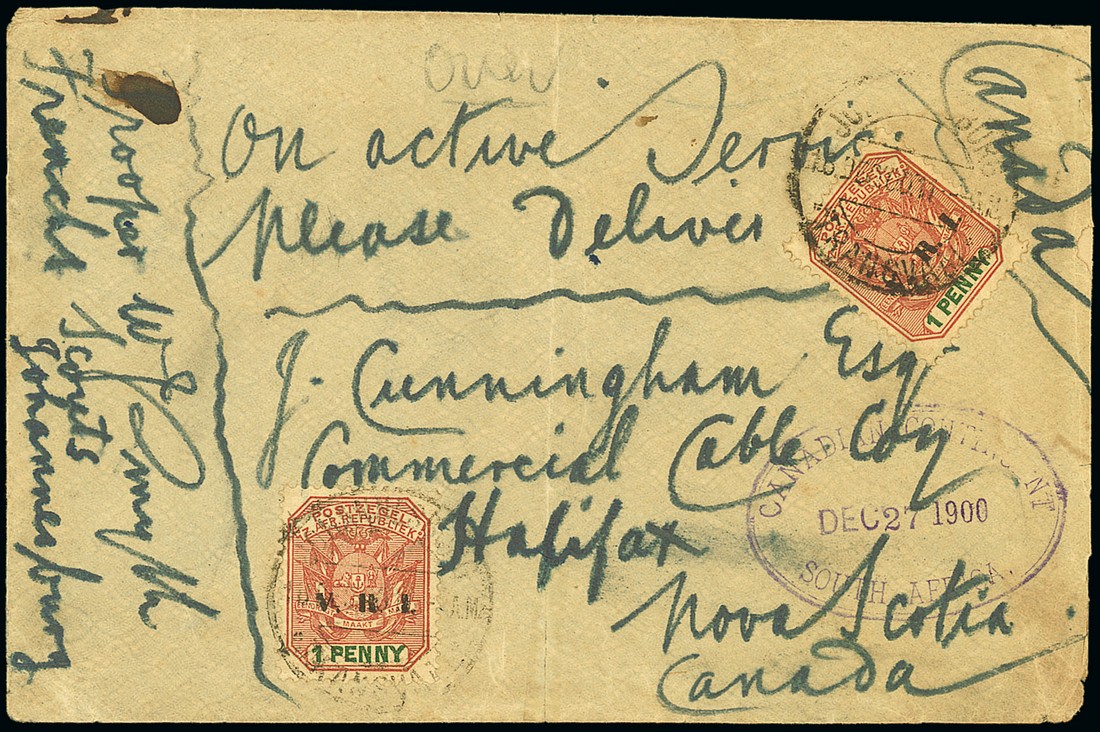 Over
On active Service
please Deliver
Canada
J. Cunningham Esq
Commercial Cable Coy
Halifax
Nova Scotia
Canada
Trooper
French's Scouts
Johannesburg
POSTZEGEL
Z. AFR. REPUBLIEK
V. R. I.
EENDRAGT MAAKT MAGT
1 PENNY
POSTZEGEL
R. I
1 PENNY
TRANSVAAL
CANADIAN CONTINGENT
DEC 27 1900
SOUTH AFRICA.